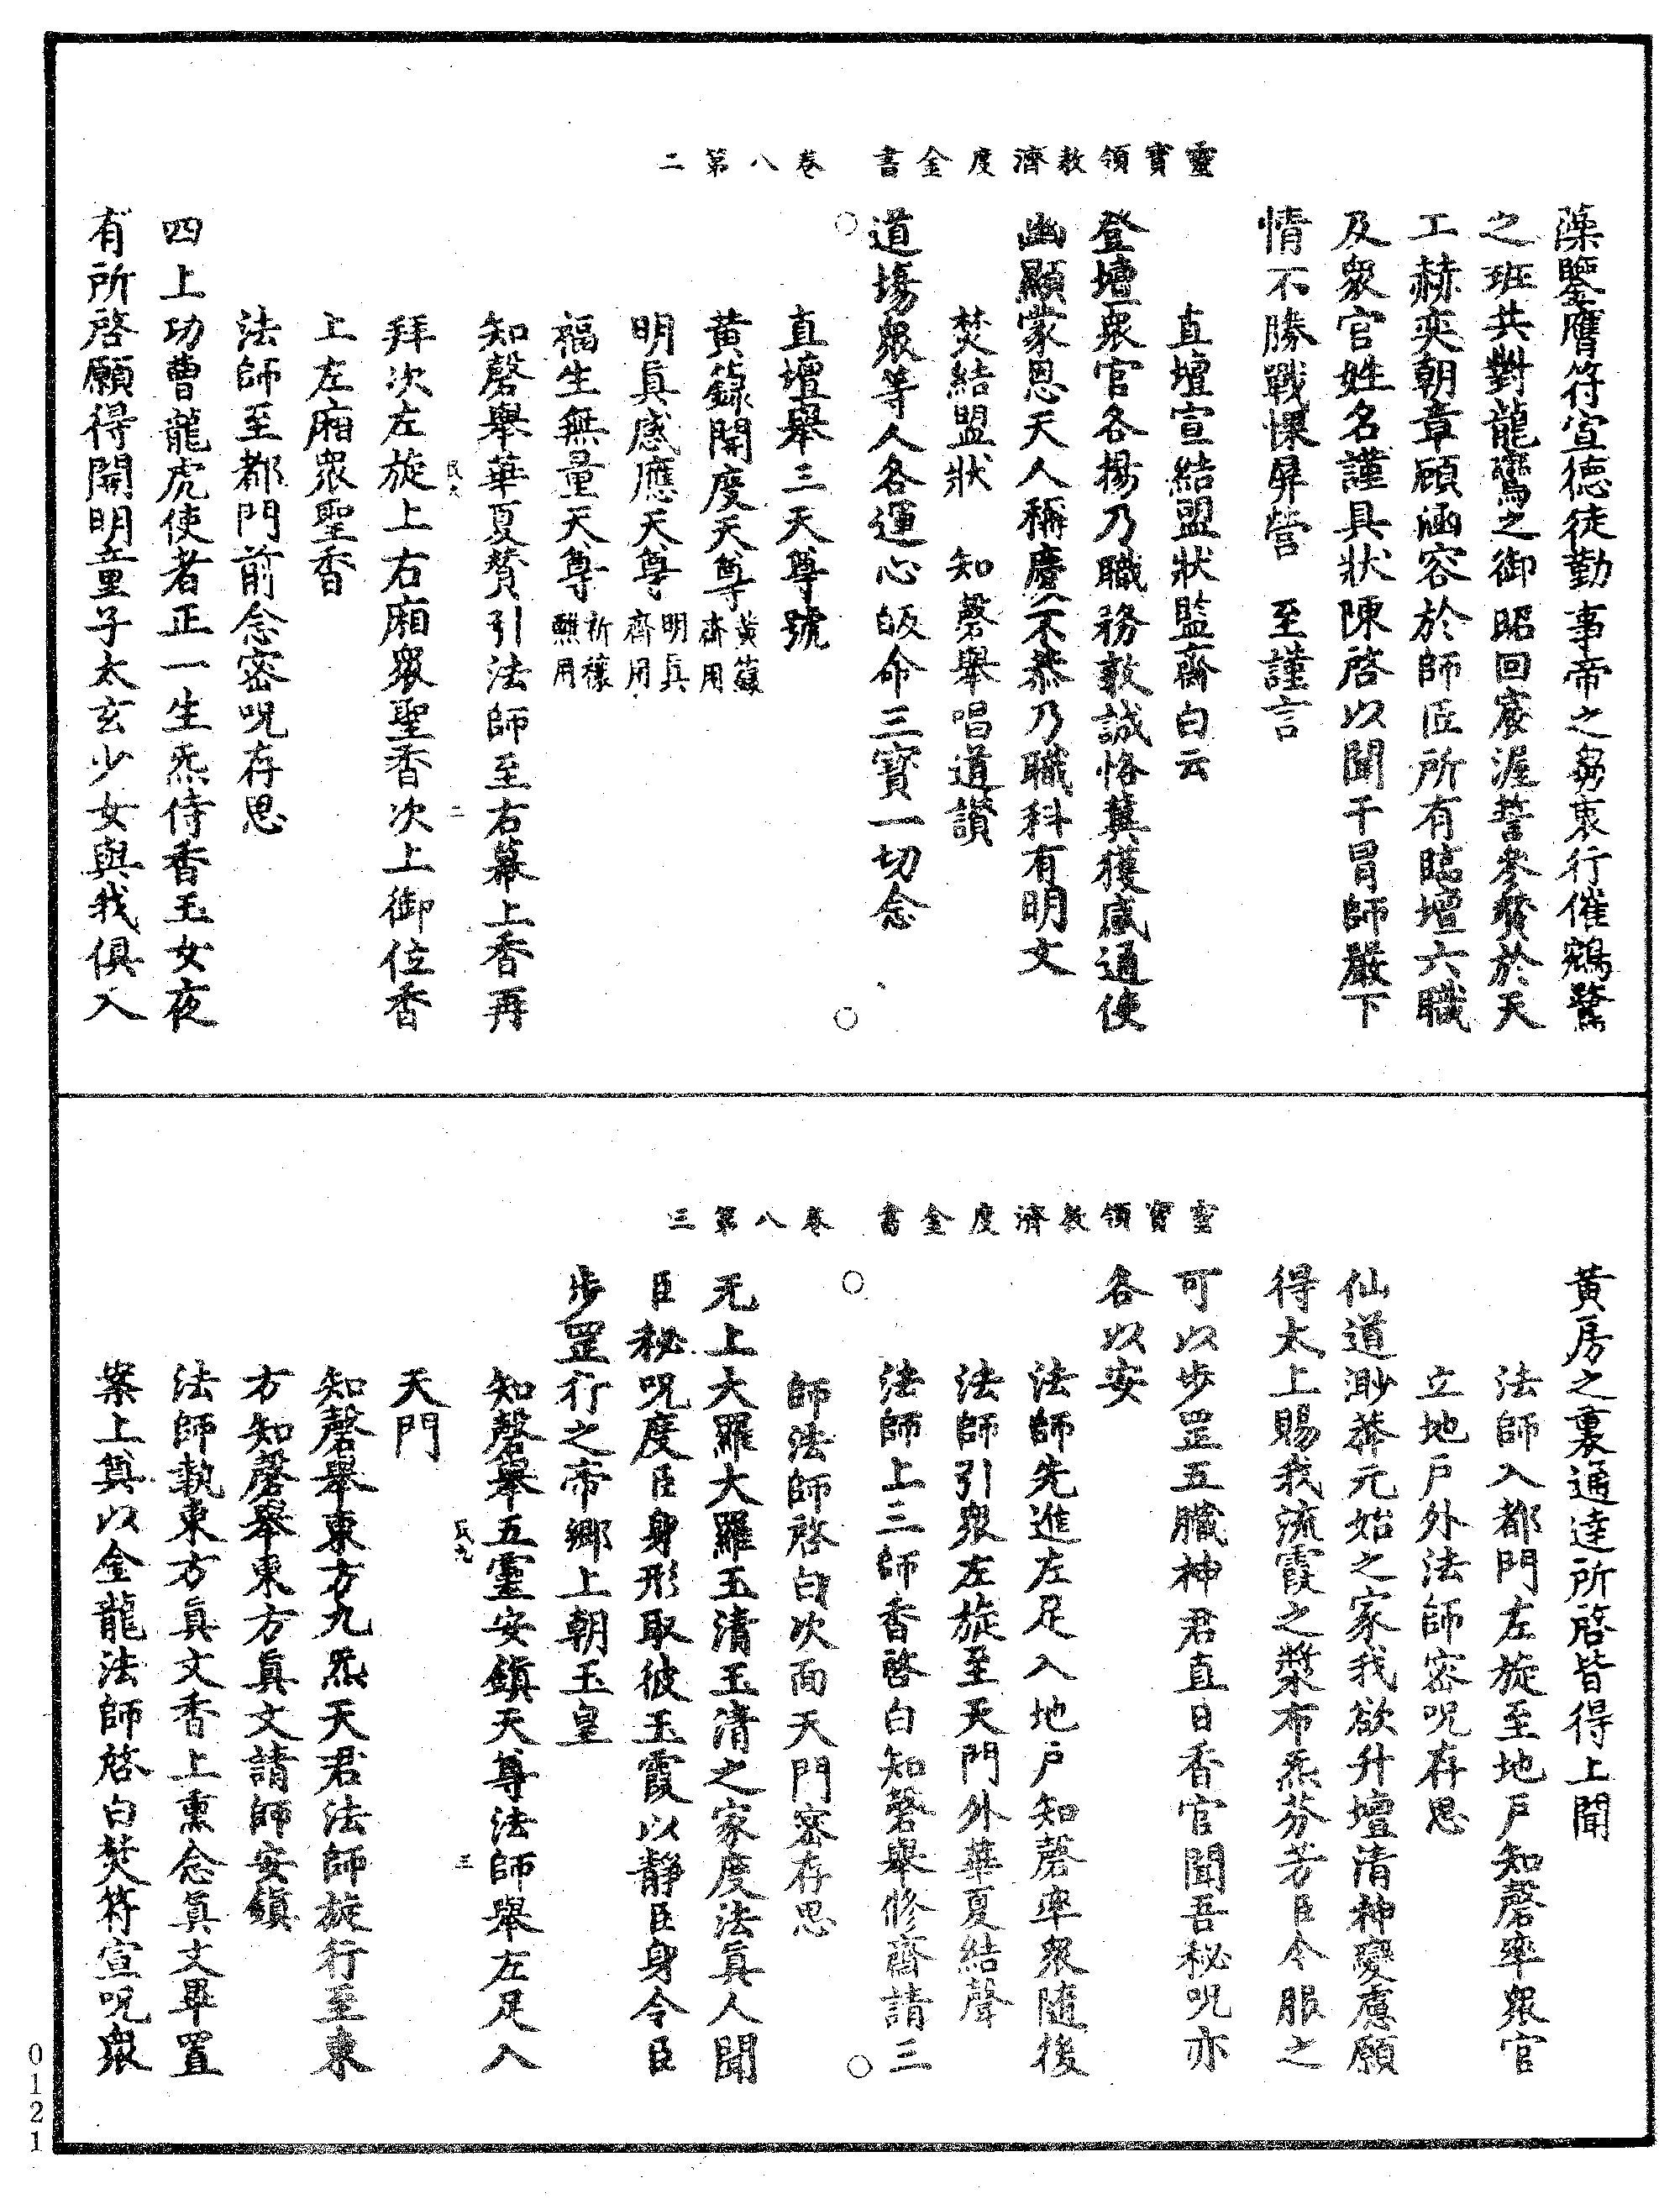 靈寶領教濟度金書 卷八第二
藻鑒膺符宣德徒勤事帝之芻衷行催鵷鷺
之班共對龍鸞之御昭回扆渥誓參贊於天
工赫奕朝章顧涵容於師匠所有臨壇六職
及衆官姓名謹具狀陳啓以聞干冒師嚴下
情不勝戰慄屏營 至謹言
直壇宣結盟狀監齋白云
登壇衆官各揚乃職務敦誠恪冀獲感通使
幽顯蒙恩天人稱慶不恭乃職科有明文
焚結盟狀 知磬舉唱道讚
道場衆等人各運心皈命三寶一切念
○ ○
直壇舉三天尊號
黃籙開度天尊黃籙齋用
明眞感應天尊明眞齋用
福生無量天尊祈禳醮用
知磬舉華夏贊引法師至右幕上香再
民九 二
拜次左旋上右廂衆聖香次上御位香
上左廂衆聖香
法師至都門前念密呪存思
四上功曹龍虎使者正一生炁侍香玉女夜
有所啓願得開明童子太玄少女與我俱入
靈寶領教濟度金書 卷八第三
黃房之裏通達所啓皆得上聞
法師入都門左旋至地戶知磬率衆官
立地戶外法師密呪存思
仙道渺莽元始之家我欲升壇清神變慮願
得太上賜我流霞之漿布炁芬芳臣今服之
可以步罡五臟神君直日香官聞吾秘呪亦
各以安
法師先進左足入地戶知磬率衆隨後
法師引衆左旋至天門外華夏結聲
法師上三師香啓白知磬舉修齋請三
○ ○
師法師啓白次面天門密存思
无上大羅大羅玉清玉清之家度法眞人聞
臣秘呪度臣身形取彼玉霞以靜臣身令臣
步罡行之帝鄉上朝玉皇
知磬舉五靈安鎭天尊法師舉左足入
民九 三
天門
知磬舉東方九炁天君法師旋行至東
方知磬舉東方眞文請師安鎭
法師執東方眞文香上熏念眞文畢置
案上奠以金龍法師啓白焚符宣呪衆
0121